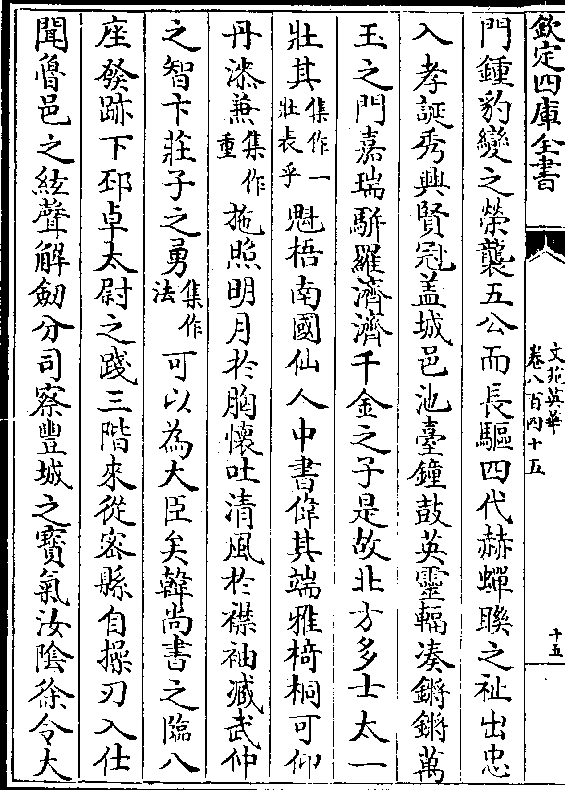 欽定四庫全書
文苑英華
卷八百四十五
十五
門鍾豹變之榮襲五公而長驅四代赫蟬聯之祉出忠
入孝誕秀興賢冠盖城邑池臺鐘鼓英靈輻湊鏘鏘萬
玉之門嘉瑞駢羅濟濟千金之子是故北方多士太一
壯其集作一壯表乎魁梧南國仙人中書偉其端雅椅桐可仰
丹漆兼集作重施照明月於胸懷吐清風於襟袖臧武仲
之智卞莊子之勇集作法可以為大臣矣韓尚書之臨八
座發跡下邳卓太尉之踐三階來從密縣自操刃入仕
聞魯邑之絃聲解劒分司察豐城之寳氣汝隂徐令大